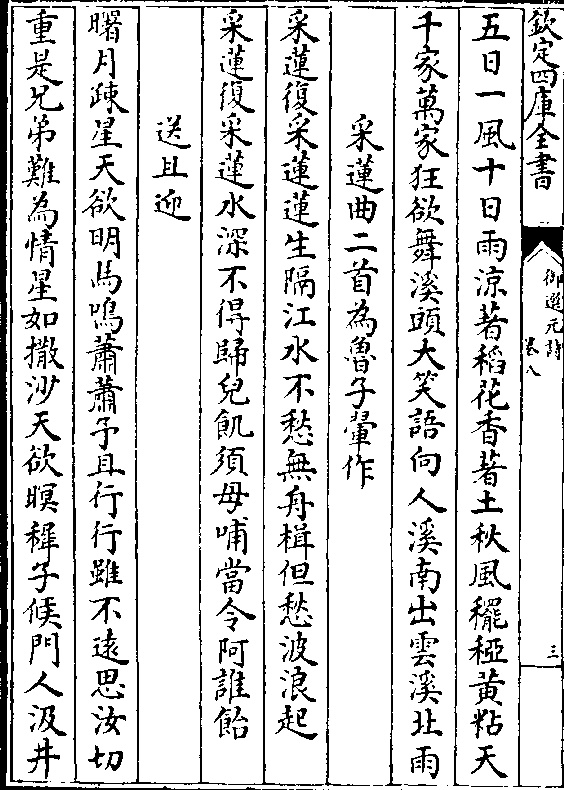 欽定四庫全書
御選元詩
卷八
三
五日一風十日雨涼著稻花香著土秋風䆉稏黃粘天
千家萬家狂欲舞溪頭大笑語向人溪南出雲溪北雨
采蓮曲二首為魯子翬作
采蓮復采蓮蓮生隔江水不愁無舟楫但愁波浪起
采蓮復采蓮水深不得歸兒飢須母哺當令阿誰飴
送且迎
曙月疎星天欲明馬鳴蕭蕭予且行行雖不遠思汝切
重是兄弟難為情星如撒沙天欲暝穉子候門人汲井